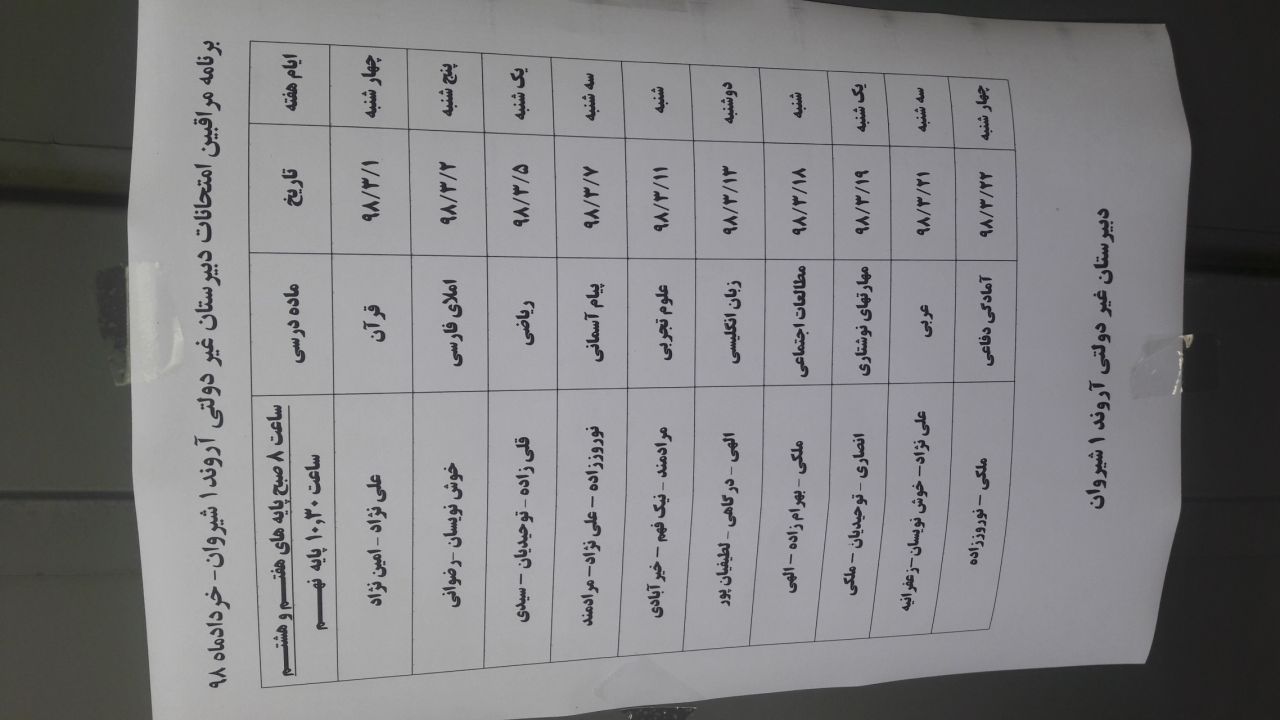 برنامه مراقبین امتحانات دبیرستان غیر دولتی آروند ۱ شیروان- خردادماه ۹۸
ایام هفته تاریخ ماده درسی ساعت ۸ صبح پایه های هفتـــم و هشتـــم
ساعت ۱۰,۳۰ پایه نهـــــم
چهار شنبه ۹۸/۳/۱ قرآن علی نژاد - امین نژاد
پنج شنبه ۹۸/۳/۲ املای فارسی خوش نویسان -رضوانی
یک شنبه ۹۸/۳/۵ ریاضی قلی زاده - توحیدیان – سیدی
سه شنبه ۹۸/۳/۷ پیام آسمانی نوروززاده – علی نژاد - مرادمند
شنبه ۹۸/۳/۱۱ علوم تجربی مرادمند - نیک فهم – خیر آبادی
دوشنبه ۹۸/۳/۱۳ زبان انگلیسی الهی - درگاهی - لطیفیان پور
شنبه ۹۸/۳/۱۸ مطالعات اجتماعی ملکی - بهرام زاده – الهی
یک شنبه ۹۸/۳/۱۹ مهارتهای نوشتاری انصاری - توحیدیان – ملکی
سه شنبه ۹۸/۳/۲۱ عربی علی نژاد- خوش نویسان-زعفرانیه
چهار شنبه ۹۸/۳/۲۲ آمادگی دفاعی ملکی – نوروززاده
دبیرستان غیر دولتی آروند ۱ شیروان